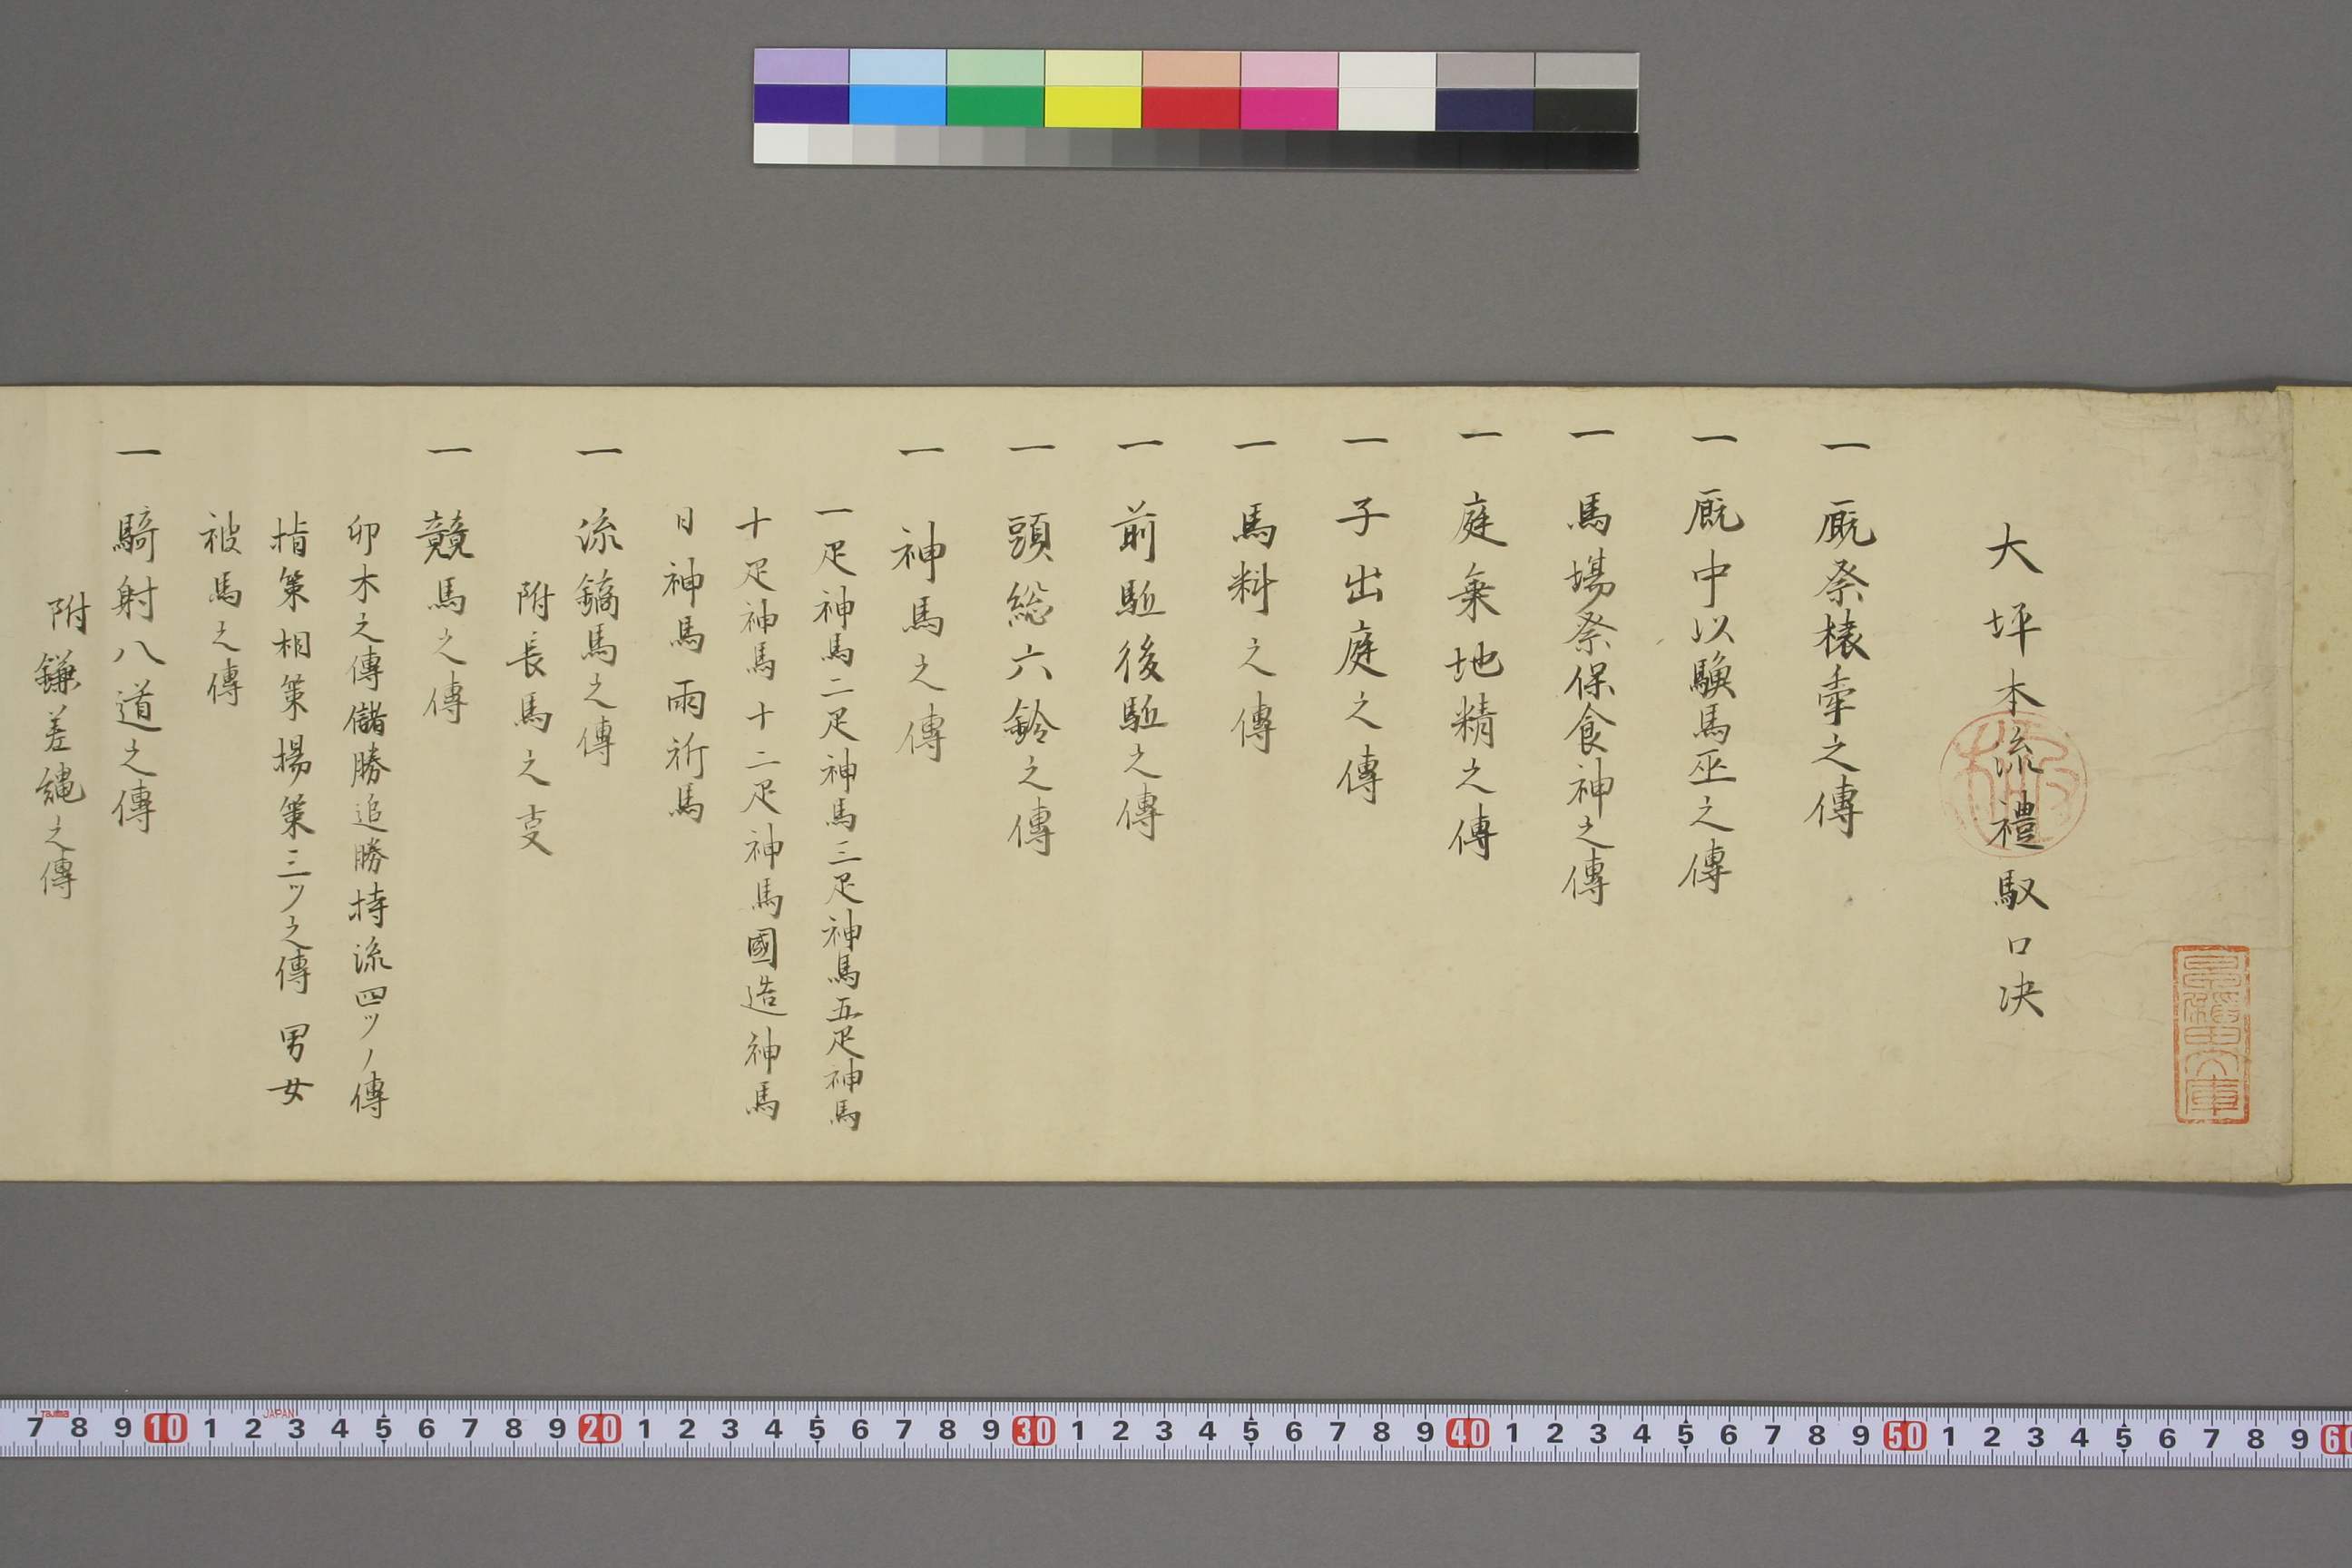 大坪本流禮馭口決
一 厩祭榱牽之傳
一 厩中以騻馬巫之傳
一 馬場祭保食神之傳
一 庭乗地精之傳
一 子出庭之傳
一 馬料之傳
一 前駈後駈之傳
一 頭総六鈴之傳
一 神馬之傳
一疋神馬二疋神馬三疋神馬五疋神馬
十疋神馬十二疋神馬國造神馬
日神馬雨祈馬
一 流鏑馬之傳
附長馬之叓
一 競馬之傳
卯木之傳儲勝追勝持流四ツノ傳
指策相策揚策三ツ之傳 男女
被馬之傳
一 騎射八道之傳
附鎌差縄之傳
7 8 9 10 1 2 3 4 5 6 7 8 9 20 1 2 3 4 5 6 7 8 9 30 1 2 3 4 5 6 7 8 9 40 1 2 3 4 5 6 7 8 9 50 1 2 3 4 5 6 7 8 9 60
Tajima JAPAN